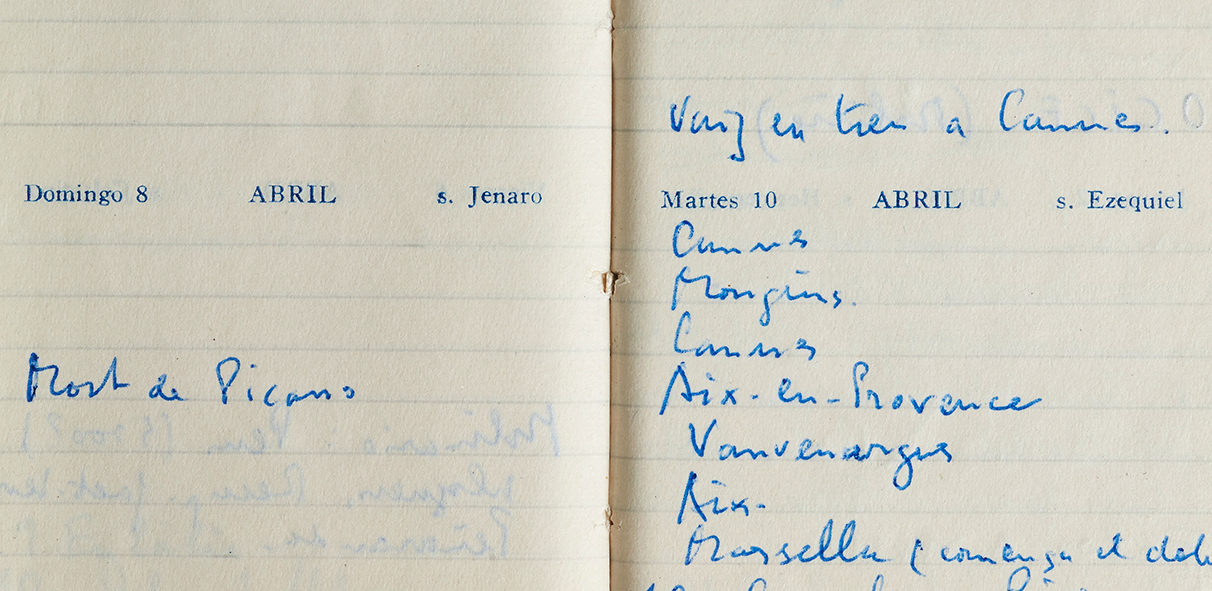 Domingo 8 ABRIL s. Jenaro
Mort de Picasso
Vaig en tren a Cannes.
Martes 10 ABRIL s. Ezequiel
Cannes
Mougins.
Cannes
Aix-en-Provence
Vauvenargues
Aix-
Marsella (comença el deb